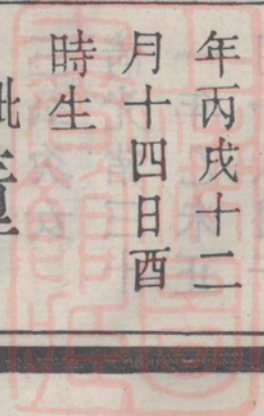 年丙戌十二
月十四日酉
時生